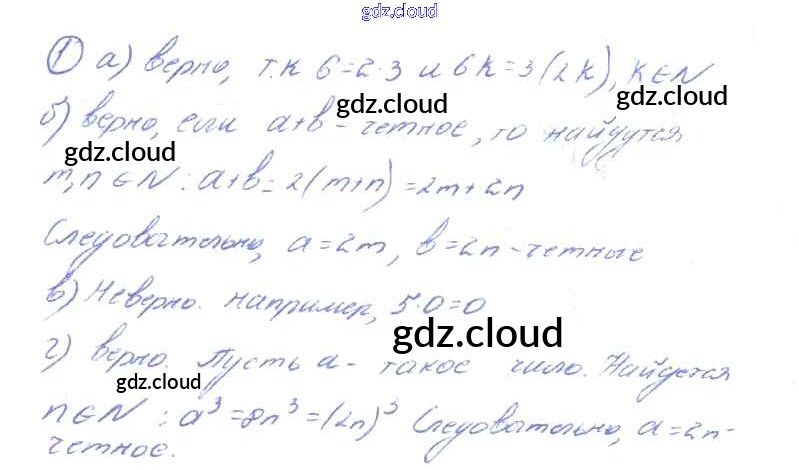 gdz.cloud
① а) верно, т.к 6=2·3 и 6k=3(2k), k∈N
gdz.cloud gdz.cloud
б) верно, если а+в - четное, то найдутся
gdz.cloud
m,n∈N : а+в=2(m+n)=2m+2n
Следовательно, а=2m, в=2n - четные
в) Неверно. например, 5·0=0
gdz.cloud
г) верно. Пусть а - такое число. Найдется
gdz.cloud gdz.cloud
n∈N : а³=8n³=(2n)³ Следовательно, а=2n-
четное.